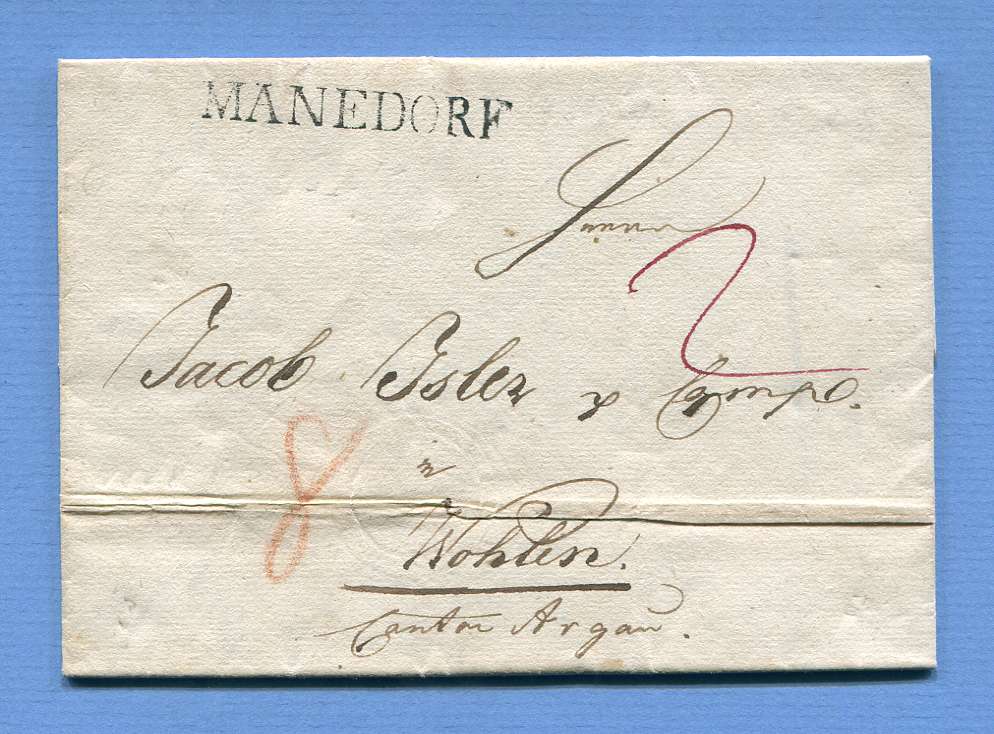 MÄNEDORF
Herren
2
Jacob Isler & Comp.
8
in
Wohlen.
Canton Argau.